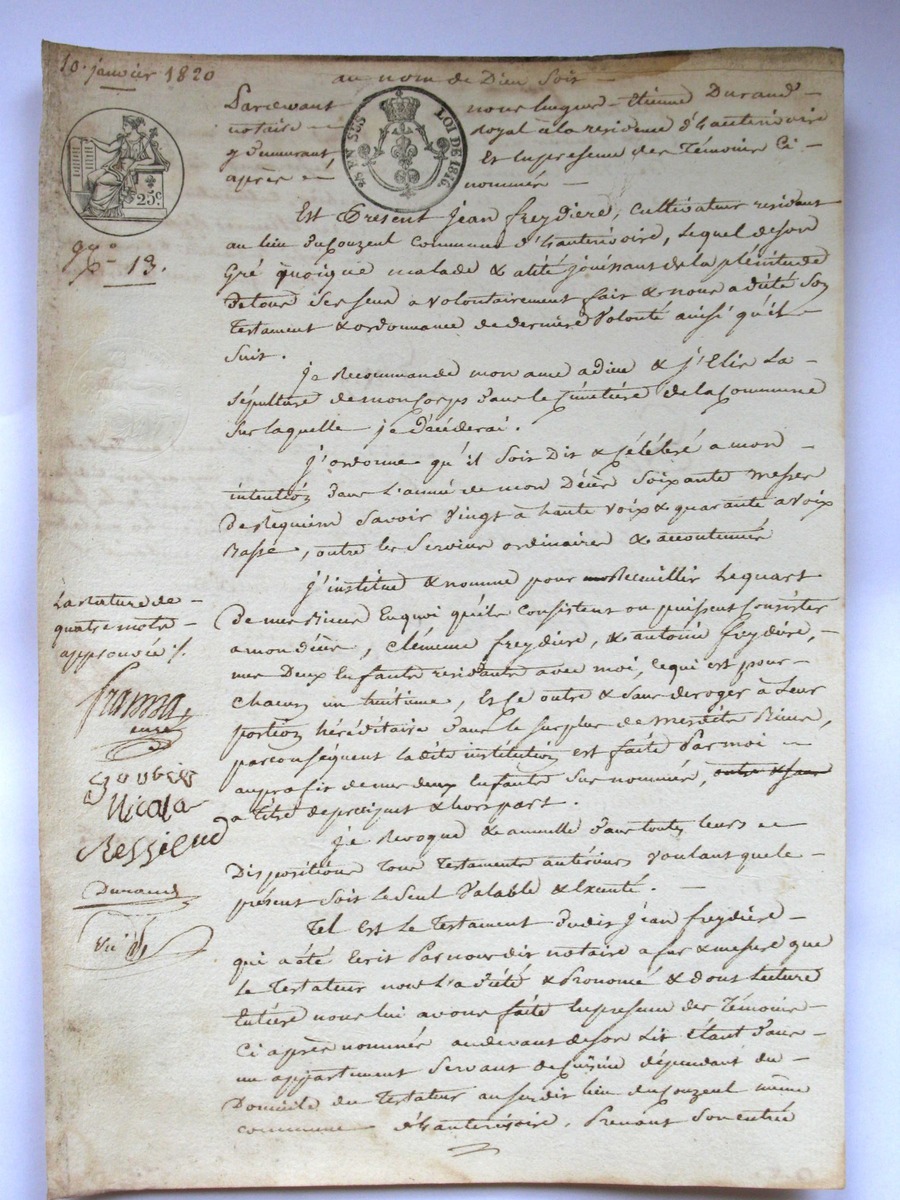 10. janvier 1820
au nom de Dieu Soit
25 EN SUS
LOI DE 1816.
25c
Pardevant nous hugues Etienne Durand
notaire royal à la residence d'hauterivoire
y demeurant, Et En presence des Témoins Ci
après nommés
Est Présent Jean freydiere, cultivateur residant
au lieu du Pouzent commune d'hauterivoire, Lequel de son
Gré quoique malade & alité jouissant de la plénitude
de tous Ses Sens a volontairement fait & nous a dicté Son
Testament & ordonnance de derniere Volonté ainsi qu'il
Suit.
N° 13.
Je Recommande mon ame a dieu & j'Elis La
Sépulture de mon Corps dans le Cimetière de la Commune
Sur laquelle je décéderai.
J'ordonne qu'il Soit Dit & Célébré a mon
intention dans L'année de mon Décès Soixante messes
de Requiem Savoir Vingt à haute Voix & quarante a Voix
Basse, outre les Services ordinaires & accoutumés
J'institue & nomme pour Recueillir Le quart
de mes Biens En quoi qu'ils Consistent ou puissent Consister
a mon décès, Clémence freydière, & antoine freydière,
mes Deux Enfants residants avec moi, Ce qui est pour
Chacun un huitieme, Et Ce outre & Sans deroger à Leur
portion héréditaire dans le Surplus de mesdits Biens,
par conséquent ladite institution est faite Par moi
au profit de mes deux Enfants Sus nommés, outre & Sans
a titre de preciput & hors part.
La rature de
quatre mots
approuvée ./.
Je Revoque & annulle dans toutes leurs
Dispositions Tous Testaments antérieurs Voulant que le
présent Soit Le Seul Valable & Exécuté.
Nicola
Ressicaud
Durand
Tel est Le Testament dudit Jean freydière
qui a été Ecrit Par nous dit notaire a fur & mesure que
le Testateur nous L'a dicté & Prononcé & dont Lecture
Entière nous lui avons faite En presence des Témoins
Ci après nommés au devant de son Lit Etant dans
un appartement Servant de Cuisine dépendant du
Domicile du Testateur au susdit lieu du Pouzent même
commune d'hauterivoire, Prenant Son entrée